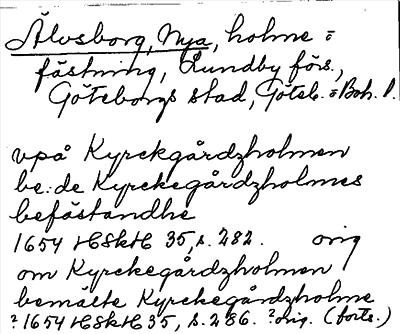 Älvsborg, Nya, holme =
fästning, Lundby förs.,
Göteborgs stad, Göteb. = Boh. l.
vpå Kyrckgårdzholmen
be:de Kyrckegårdzholmes
befästandhe
1654 HSkH 35, s. 282. orig
om Kyrckegårdzholmen
bemälte Kyrckegårdzholme
²1654 HSkH 35, s. 286. ²orig. (forts.)